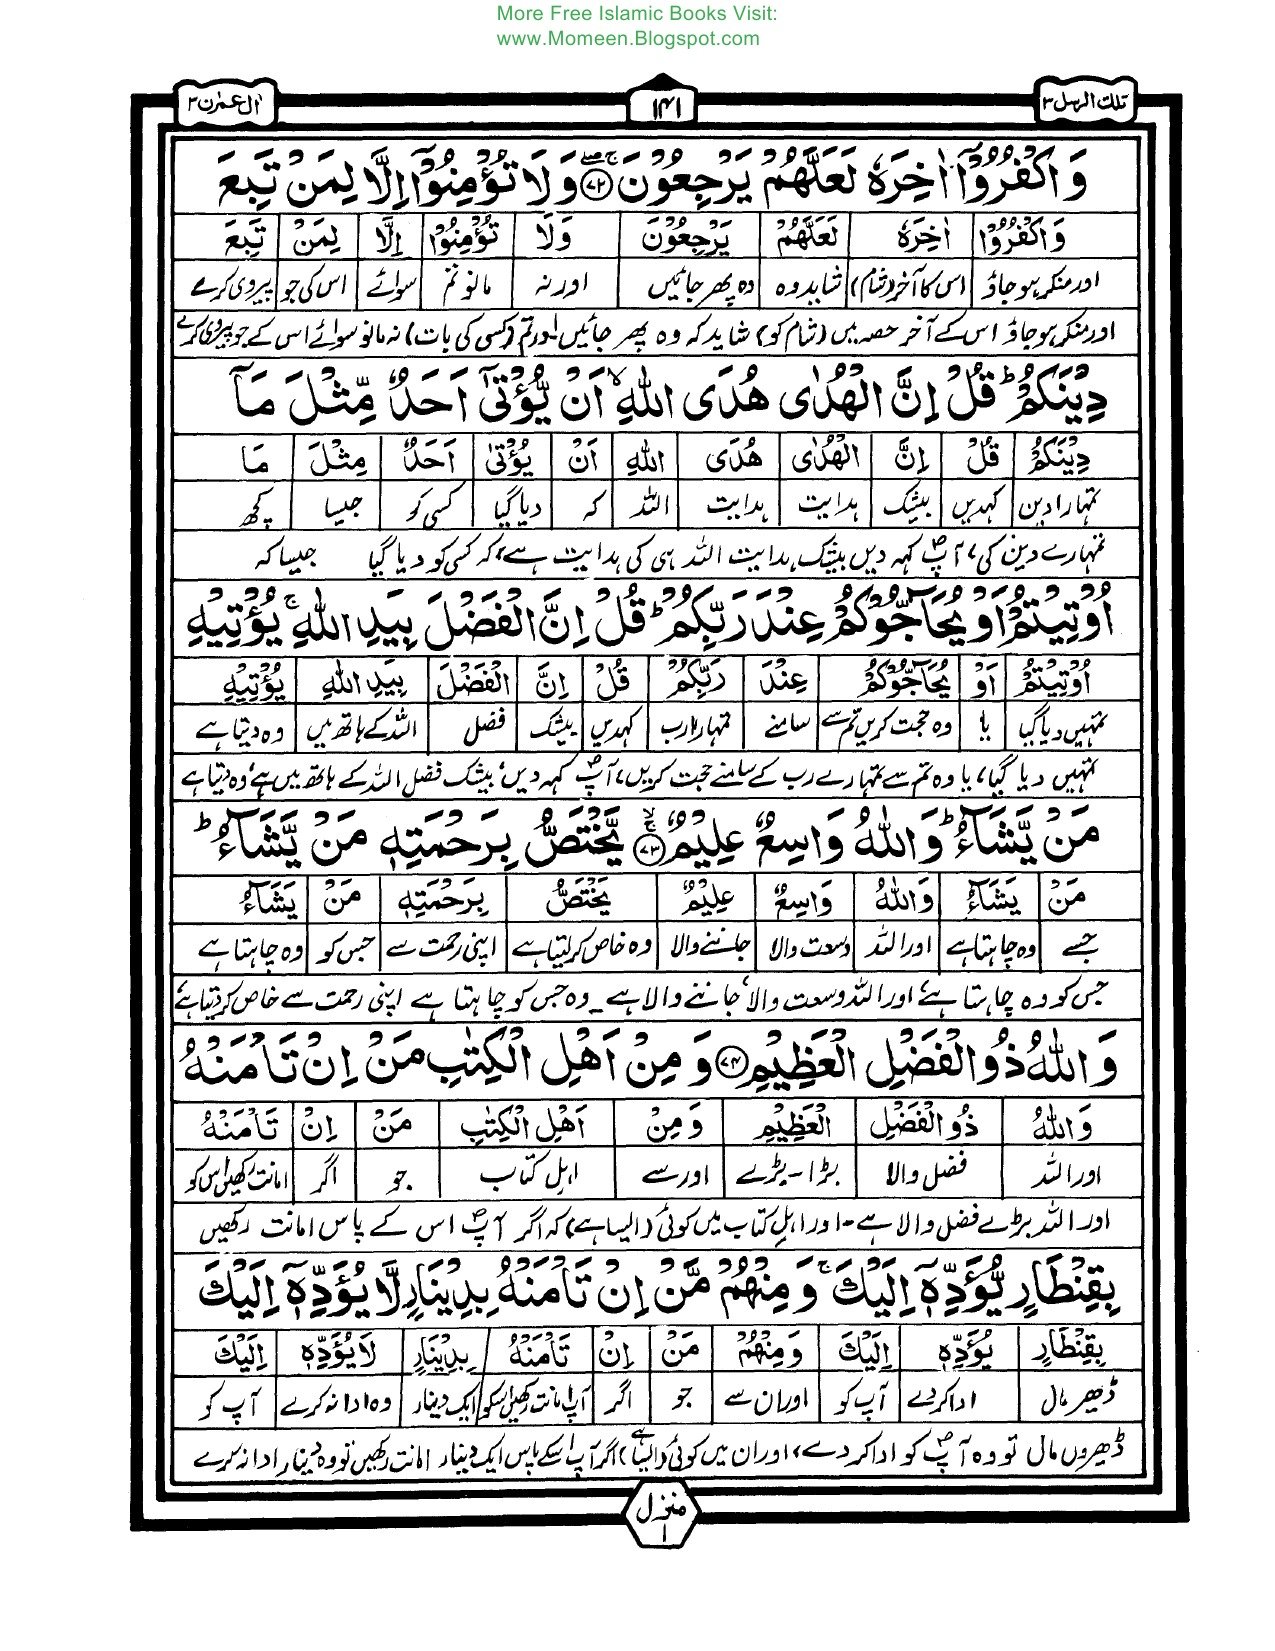 More Free Islamic Books Visit:
www.Momeen.Blogspot.com
تلك الرسل ٣
۱۴۱
اٰل عمرٰن ٣
وَاكْفُرُوْٓا اٰخِرَهٗ لَعَلَّهُمْ يَرْجِعُوْنَ ۝٧٢ وَلَا تُؤْمِنُوْٓا اِلَّا لِمَنْ تَبِعَ
وَاكْفُرُوْٓا اٰخِرَهٗ لَعَلَّهُمْ يَرْجِعُوْنَ وَلَا تُؤْمِنُوْٓا اِلَّا لِمَنْ تَبِعَ
اور منکر ہو جاؤ اس کا آخر (شام) شاید وہ وہ پھر جائیں اور نہ مانو تم سوائے اس کی جو پیروی کرے
اور منکر ہو جاؤ اس کے آخر حصہ میں (شام کو) شاید کہ وہ پھر جائیں۔ اور تم (کسی کی بات) نہ مانو سوائے اس کے جو پیروی کرے
دِيْنَكُمْ ؕ قُلْ اِنَّ الْهُدٰى هُدَى اللّٰهِ ۙ اَنْ يُّؤْتٰٓى اَحَدٌ مِّثْلَ مَآ
دِيْنَكُمْ قُلْ اِنَّ الْهُدٰى هُدَى اللّٰهِ اَنْ يُؤْتٰٓى اَحَدٌ مِثْلَ مَا
تمہارا دین کہدیں بیشک ہدایت ہدایت اللہ کہ دیا گیا کسی کو جیسا کچھ
تمہارے دین کی، آپؐ کہہ دیں بیشک ہدایت اللہ ہی کی ہدایت ہے، کہ کسی کو دیا گیا جیسا کہ
اُوْتِيْتُمْ اَوْ يُحَآجُّوْكُمْ عِنْدَ رَبِّكُمْ ؕ قُلْ اِنَّ الْفَضْلَ بِيَدِ اللّٰهِ ۚ يُؤْتِيْهِ
اُوْتِيْتُمْ اَوْ يُحَآجُّوْكُمْ عِنْدَ رَبِّكُمْ قُلْ اِنَّ الْفَضْلَ بِيَدِ اللّٰهِ يُؤْتِيْهِ
تمہیں دیا گیا یا وہ حجت کریں تم سے سامنے تمہارا رب کہدیں بیشک فضل اللہ کے ہاتھ میں وہ دیتا ہے
تمہیں دیا گیا، یا وہ تم سے تمہارے رب کے سامنے حجت کریں، آپؐ کہہ دیں، بیشک فضل اللہ کے ہاتھ میں ہے، وہ دیتا ہے
مَنْ يَّشَآءُ ؕ وَاللّٰهُ وَاسِعٌ عَلِيْمٌ ۝٧٣ يَّخْتَصُّ بِرَحْمَتِهٖ مَنْ يَّشَآءُ ؕ
مَنْ يَشَآءُ وَاللّٰهُ وَاسِعٌ عَلِيْمٌ يَخْتَصُّ بِرَحْمَتِهٖ مَنْ يَشَآءُ
جسے وہ چاہتا ہے اور اللہ وسعت والا جاننے والا وہ خاص کر لیتا ہے اپنی رحمت سے جس کو وہ چاہتا ہے
جس کو وہ چاہتا ہے، اور اللہ وسعت والا، جاننے والا ہے۔ وہ جس کو چاہتا ہے اپنی رحمت سے خاص کر دیتا ہے
وَاللّٰهُ ذُو الْفَضْلِ الْعَظِيْمِ ۝٧٤ وَمِنْ اَهْلِ الْكِتٰبِ مَنْ اِنْ تَاْمَنْهُ
وَاللّٰهُ ذُو الْفَضْلِ الْعَظِيْمِ وَمِنْ اَهْلِ الْكِتٰبِ مَنْ اِنْ تَاْمَنْهُ
اور اللہ فضل والا بڑا - بڑے اور سے اہل کتاب جو اگر امانت رکھیں اس کو
اور اللہ بڑے فضل والا ہے۔ اور اہل کتاب میں کوئی (ایسا ہے) کہ اگر آپؐ اس کے پاس امانت رکھیں
بِقِنْطَارٍ يُّؤَدِّهٖٓ اِلَيْكَ ۚ وَمِنْهُمْ مَّنْ اِنْ تَاْمَنْهُ بِدِيْنَارٍ لَّا يُؤَدِّهٖٓ اِلَيْكَ
بِقِنْطَارٍ يُؤَدِّهٖٓ اِلَيْكَ وَمِنْهُمْ مَنْ اِنْ تَاْمَنْهُ بِدِيْنَارٍ لَا يُؤَدِّهٖٓ اِلَيْكَ
ڈھیر مال ادا کر دے آپ کو اور ان سے جو اگر آپ امانت رکھیں اس کو ایک دینار وہ ادا نہ کرے آپ کو
ڈھیروں مال تو وہ آپؐ کو ادا کر دے، اور ان میں کوئی (ایسا ہے) اگر آپ اسکے پاس ایک دینار امانت رکھیں تو وہ دینار ادا نہ کرے
منزل ۱